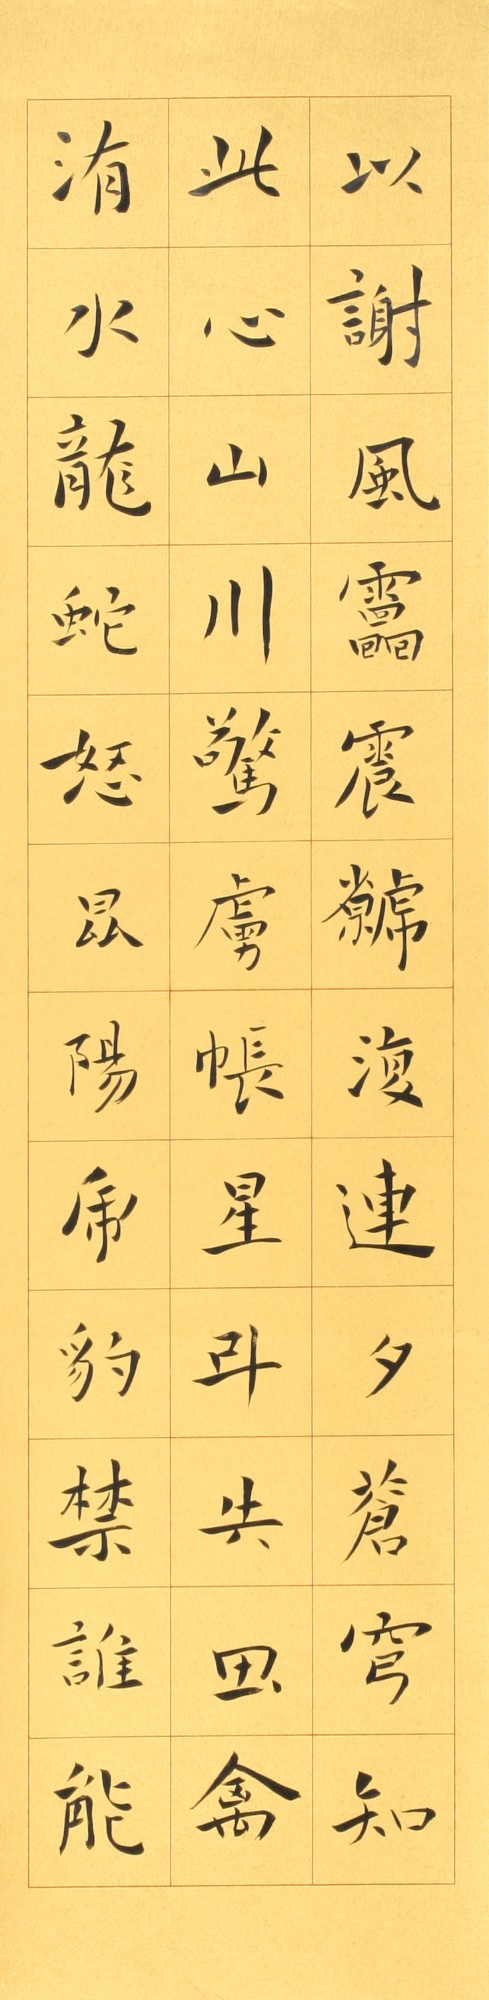 以謝風靁震虩復連夕蒼穹知
此心山川驚虜帳星斗失禽
洧水龍蛇怒昆陽虎豹禁誰能